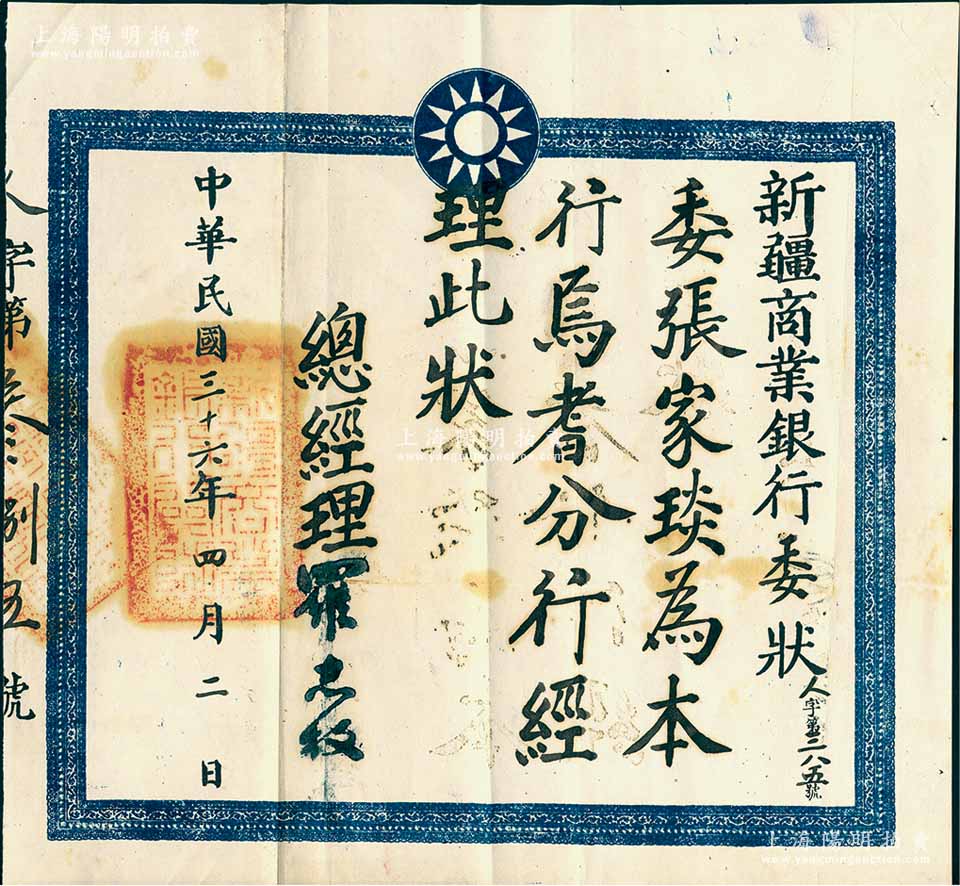 新疆商業銀行委狀
人字第三二八五號
委張家琰為本
行焉耆分行經
理此狀
總經理羅志枚
中華民國三十六年四月二日
人字第
捌五號
上海陽明拍賣
www.yangmingauction.com
上海陽明拍賣
www.yangmingauction.com
上海陽明拍賣
www.yangmingauction.com